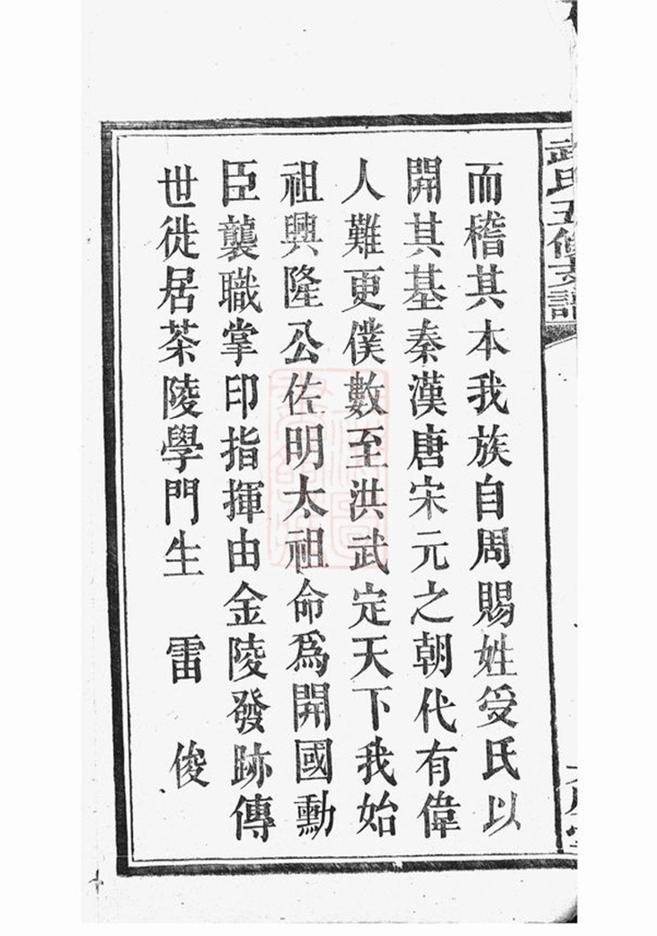 武氏五修支譜
而稽其本我族自周賜姓受氏以
開其基秦漢唐宋元之朝代有偉
人難更僕數至洪武定天下我始
祖興隆公佐明太祖命爲開國勳
臣襲職掌印指揮由金陵發跡傳
世徙居茶陵學門生　雷　俊